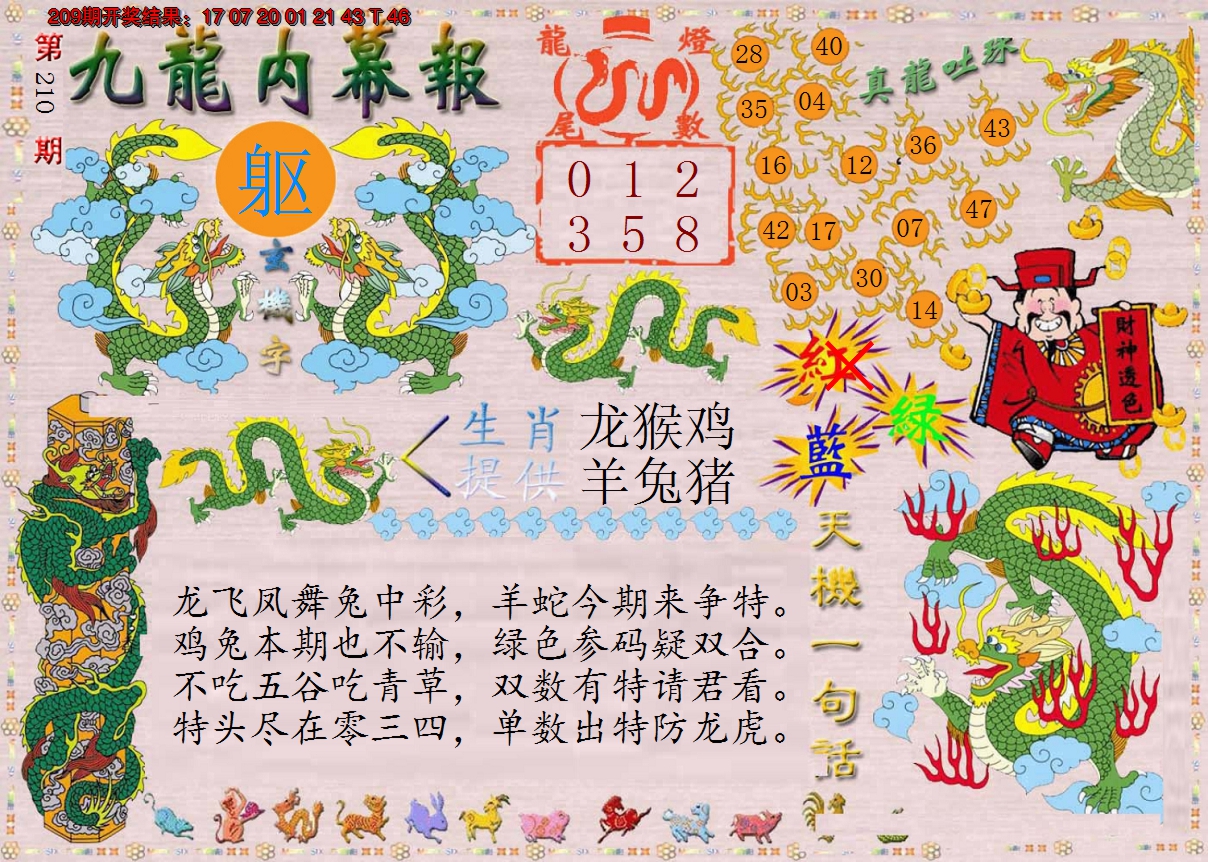 209期开奖结果：17 07 20 01 21 43 T 46
第210期
九龍内幕報
躯
玄機字
龍燈
尾數
0 1 2
3 5 8
真龍吐珠
28 40
35 04
16 12 36 43
42 17 07 47
03 30 14
財神透色
紅
绿
藍
生肖 龙猴鸡
提供 羊兔猪
天機一句话
龙飞凤舞兔中彩，羊蛇今期来争特。
鸡兔本期也不输，绿色参码疑双合。
不吃五谷吃青草，双数有特请君看。
特头尽在零三四，单数出特防龙虎。